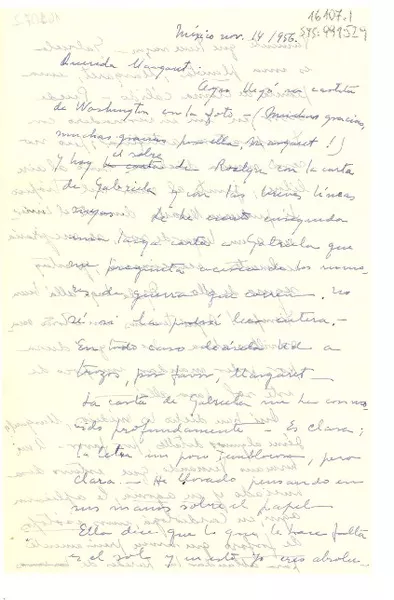 16107.1
México nov. 14/956.
Querida Margaret:
Ayer llegó su cartita
de Washington con la foto. - (Muchas gracias,
muchas gracias por ella Margaret!)
Y hoy el sobre de Roslyn con la carta
de Gabriela y con tus breves líneas
suyas. Le he escrito enseguida
una larga carta a Gabriela que
me pregunta acerca de los rumo-
res de guerra que corren. No
sé si la podrá leer entera. -
En todo caso léasela Ud a
trozos, por favor, Margaret. -
La carta de Gabriela me ha conmo-
vido profundamente - Es clara;
la letra un poco temblorosa, pero
clara. - He llorado pensando en
sus manos sobre el papel.
Ella dice que lo que le hace falta
es el sol y